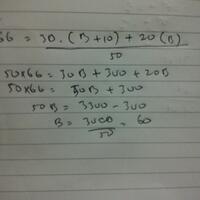 66 = 30.(B+10) + 20(B)
50
50x66 = 30B + 300 + 20B
50x66 = 50B + 300
50B = 3300 - 300
B = 3000 = 60
50